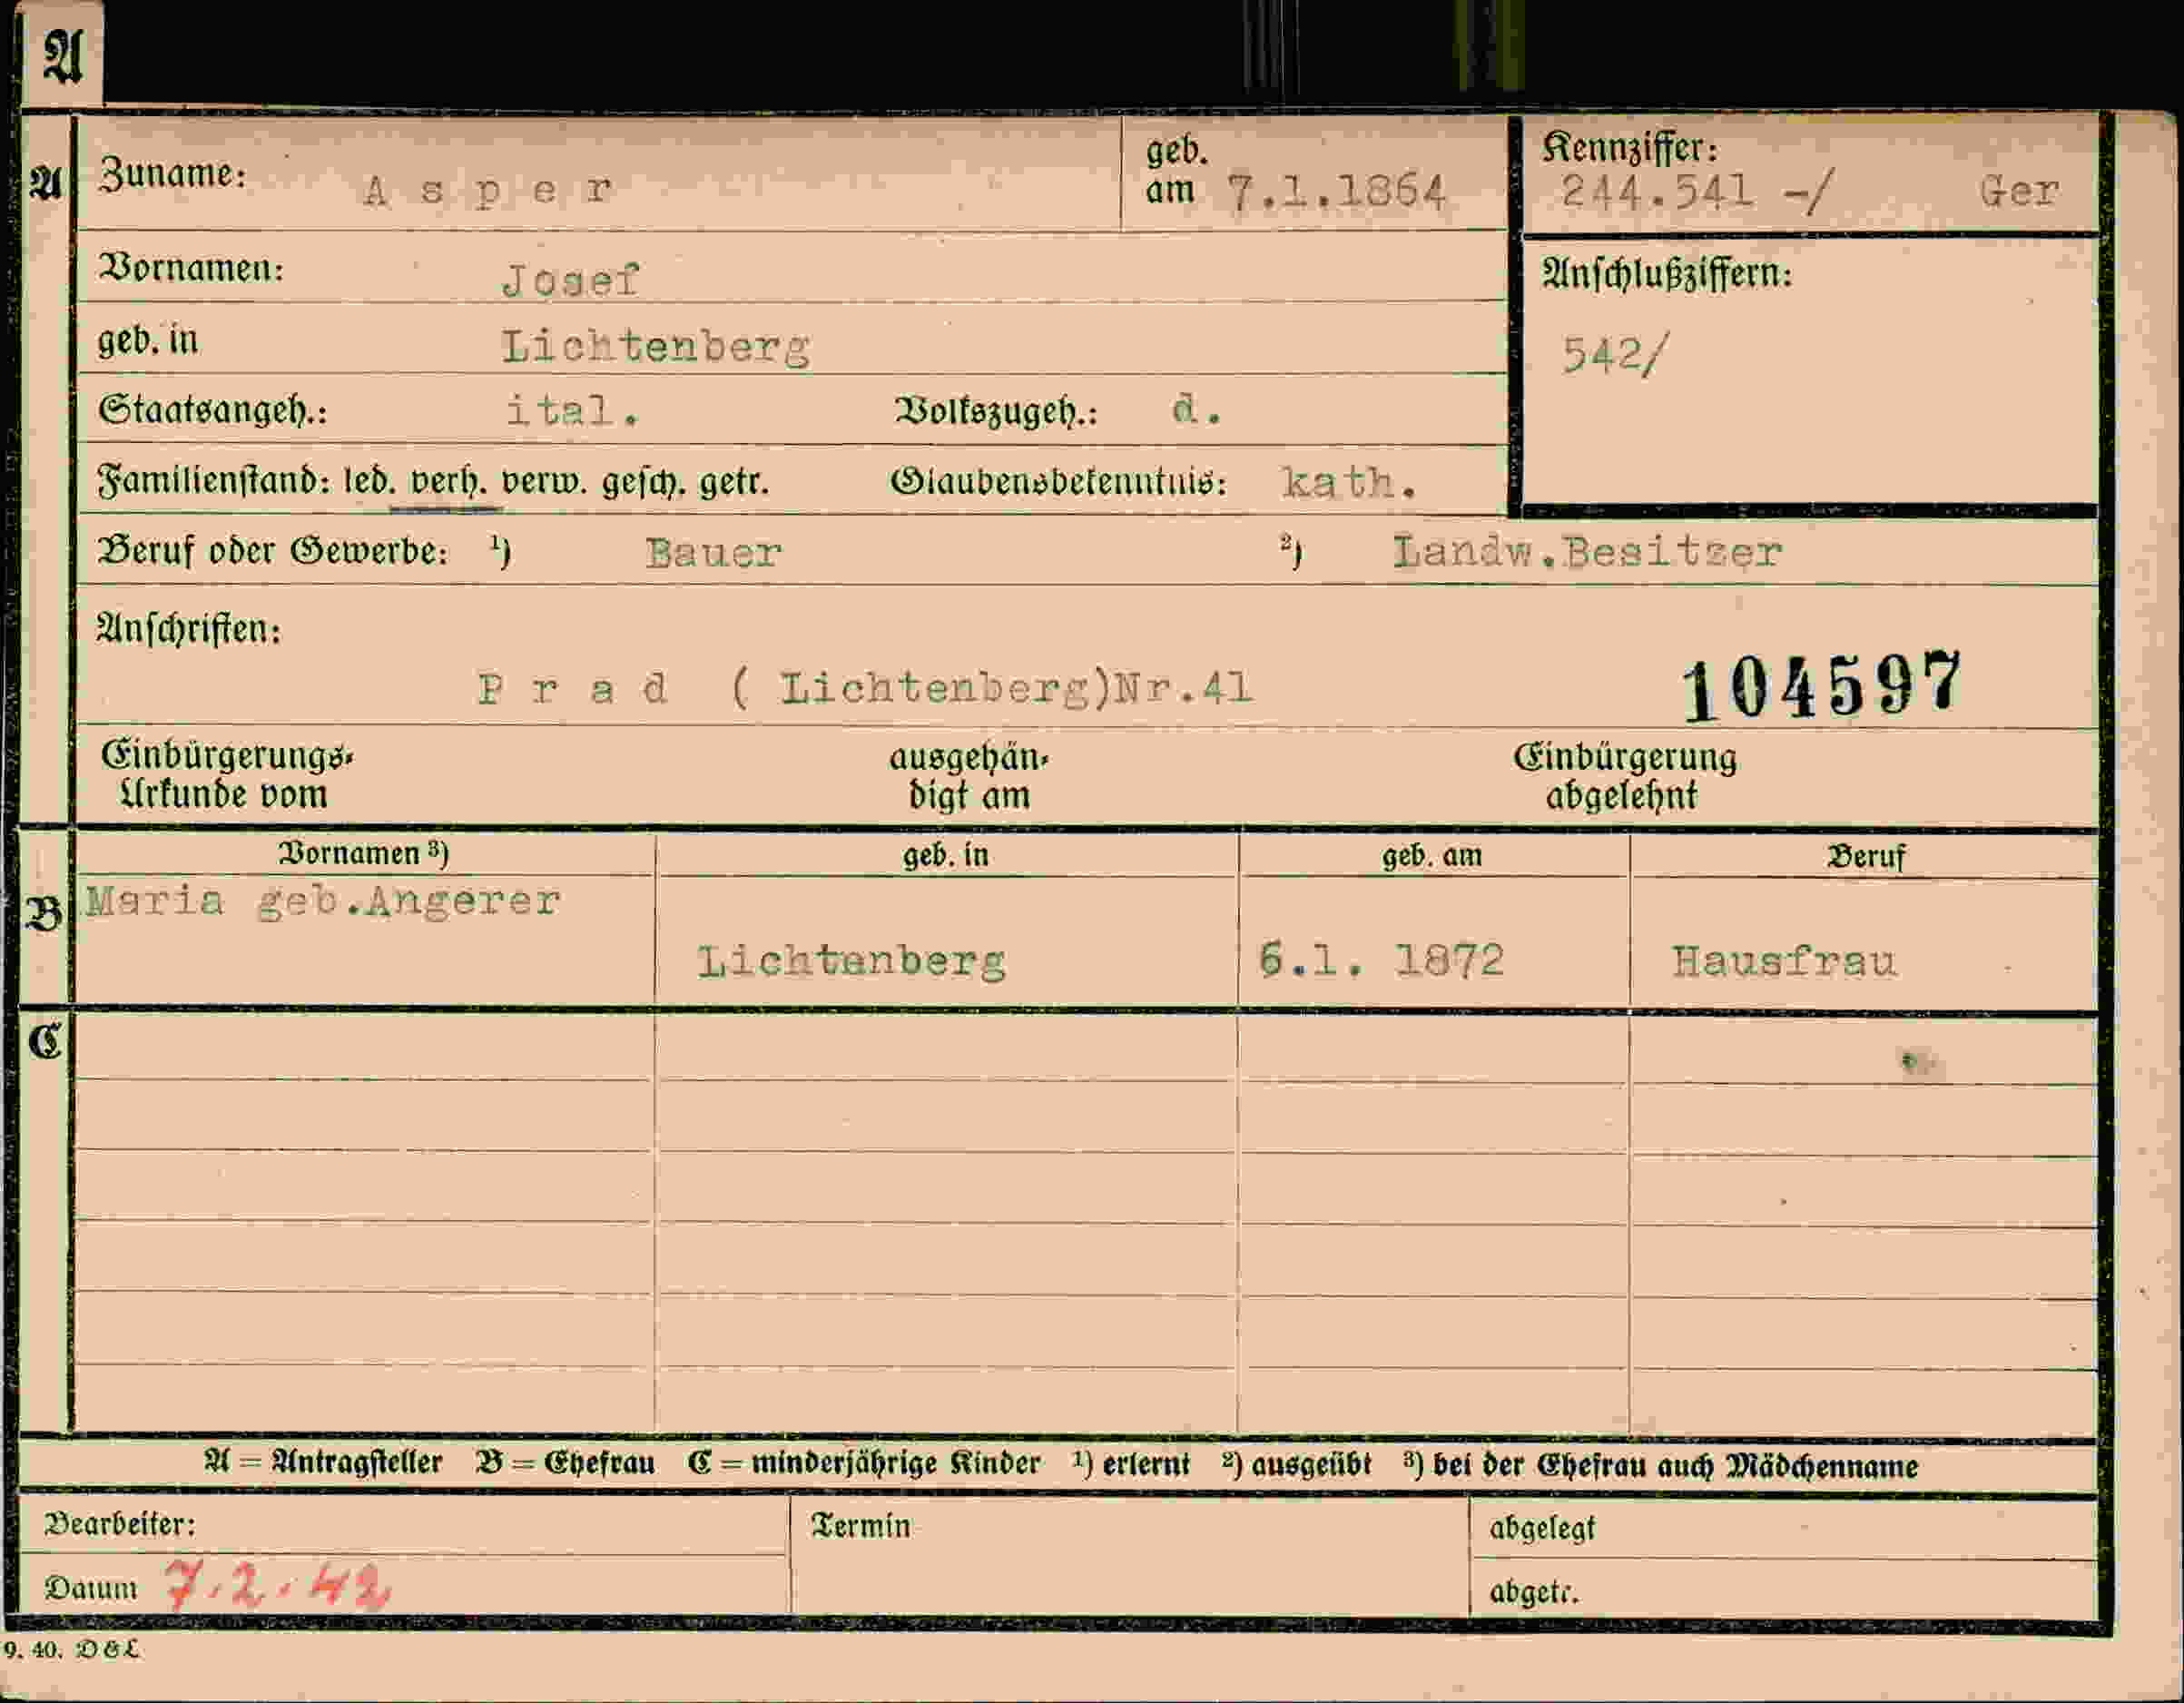 A
A Zuname: Asper geb. am 7.1.1864 Kennziffer: 244.541 -/ Ger
Vornamen: Josef Anschlußziffern:
geb. in Lichtenberg 542/
Staatsangeh.: ital. Volkszugeh.: d.
Familienstand: led. verh. verw. gesch. getr. Glaubensbekenntnis: kath.
Beruf oder Gewerbe: ¹) Bauer ²) Landw.Besitzer
Anschriften:
Prad ( Lichtenberg)Nr.41 104597
Einbürgerungs- ausgehän- Einbürgerung
Urkunde vom digt am abgelehnt
Vornamen ³) geb. in geb. am Beruf
B Maria geb.Angerer
Lichtenberg 6.1. 1872 Hausfrau
C
A = Antragsteller B = Ehefrau C = minderjährige Kinder ¹) erlernt ²) ausgeübt ³) bei der Ehefrau auch Mädchenname
Bearbeiter: Termin abgelegt
Datum 7.2.42 abgetr.
9. 40. D&L